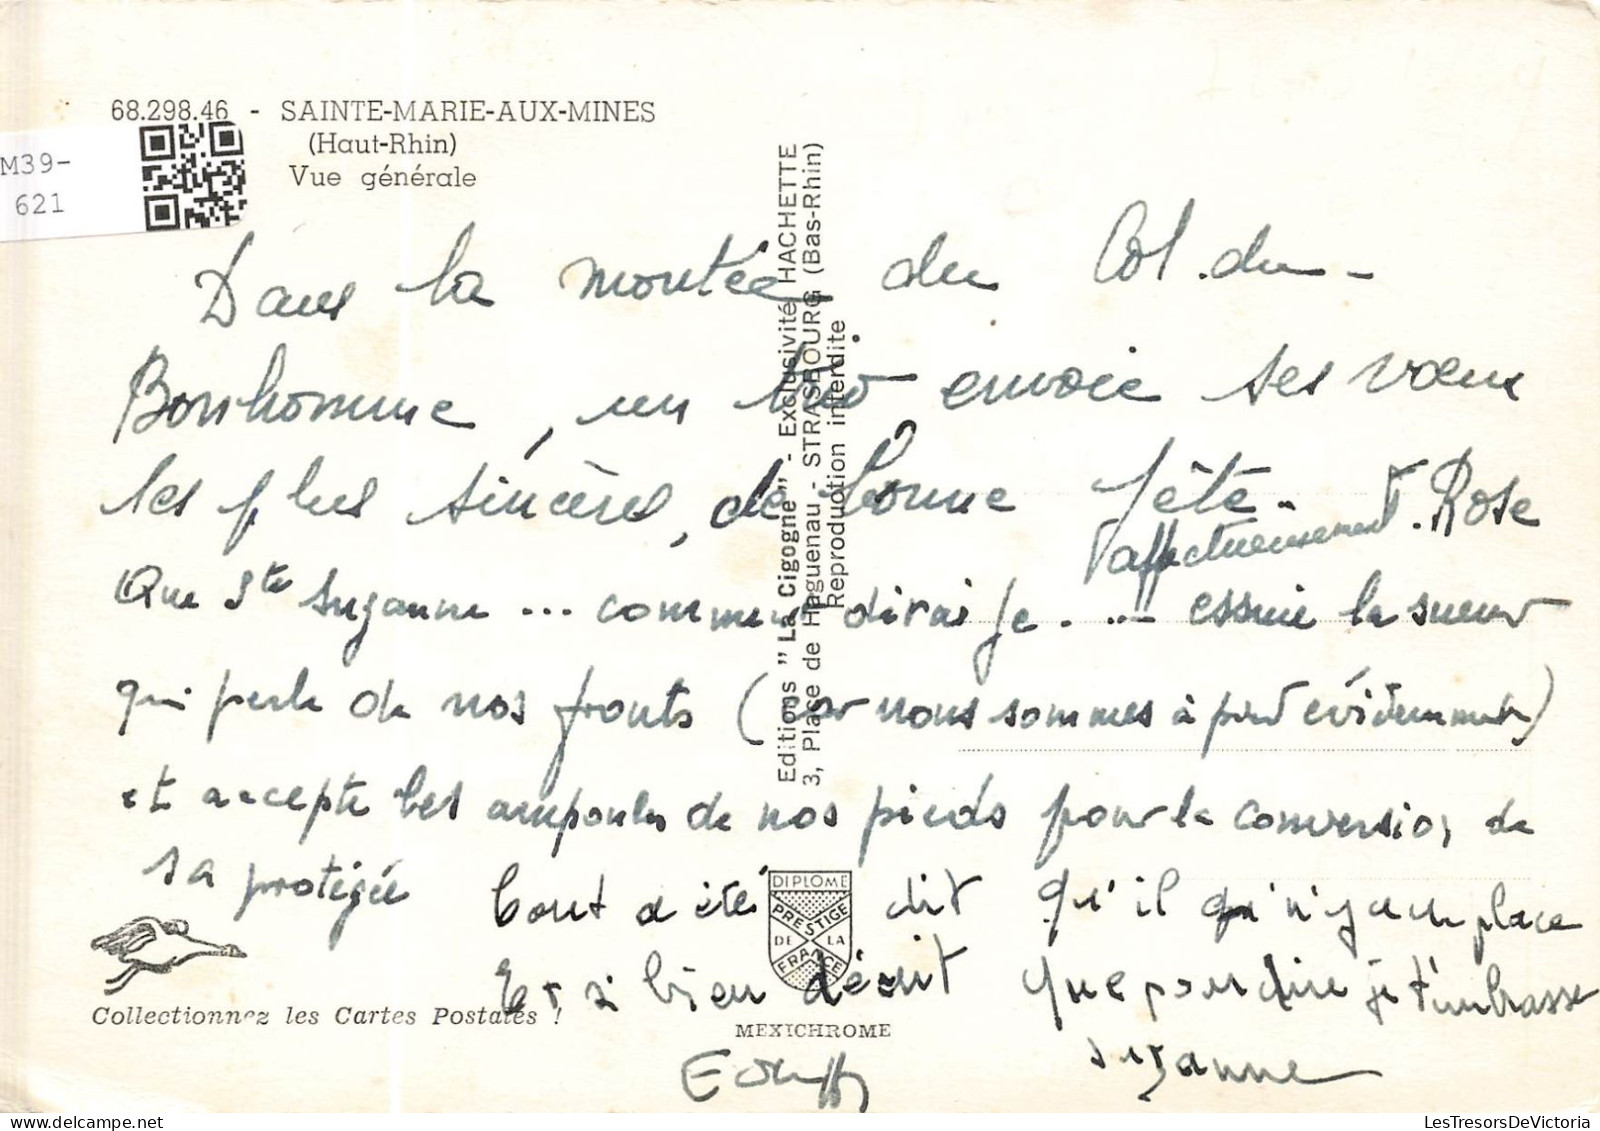 68.298.46 - SAINTE-MARIE-AUX-MINES
(Haut-Rhin)
Vue générale
M39-
621
Dans la montée du Col du
Bonhomme, un trio envoie ses vœux
les plus sincères, de bonne fête.
affectueusement. Rose
Que Ste Suzanne ... comment dirai je .... essuie la sueur
qui perle de nos fronts (car nous sommes à pied évidemment)
et accepte les ampoules de nos pieds pour la conversion de
sa protégée
Tout a été dit qu'il n'y a un place
Et si bien décrit que pour dire je t'embrasse
Suzanne
Editions "La Cigogne" - Exclusivité HACHETTE
3, Place de Haguenau - STRASBOURG (Bas-Rhin)
Reproduction interdite
DIPLOME
PRESTIGE
DE LA
FRANCE
Collectionnez les Cartes Postales !
MEXICHROME
LesTresorsDeVictoria